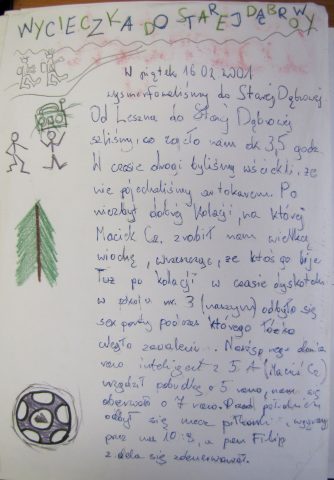 WYCIECZKA DO STAREJ DĄBROWY
W piątek 16.02.2001
wymaszerowaliśmy do Starej Dąbrowej
Od Leszna do Starej Dąbrowej
szliśmy, co zajęło nam ok 3,5 godz.
W czasie drogi byliśmy wściekli, że
nie pojechaliśmy autokarem. Po
niezbyt dobrej kolacji, na której
Maciek Cę. zrobił nam wielką
wiochę, wrzeszcząc, że ktoś go bije
Tuż po kolacji w czasie dyskoteki
w pokoju nr. 3 (naszym) odbyło się
party podczas którego łóżko
uległo zawaleniu. Następnego dnia
rano inteligent z 5A (Maciek Cę)
urządził pobudkę o 5 rano, nam się
oberwało o 7 rano. Przed południem
odbył się mecz piłkarski, wygrany
przez nas 10:8, a pan Filip
z dala się zdenerwował.